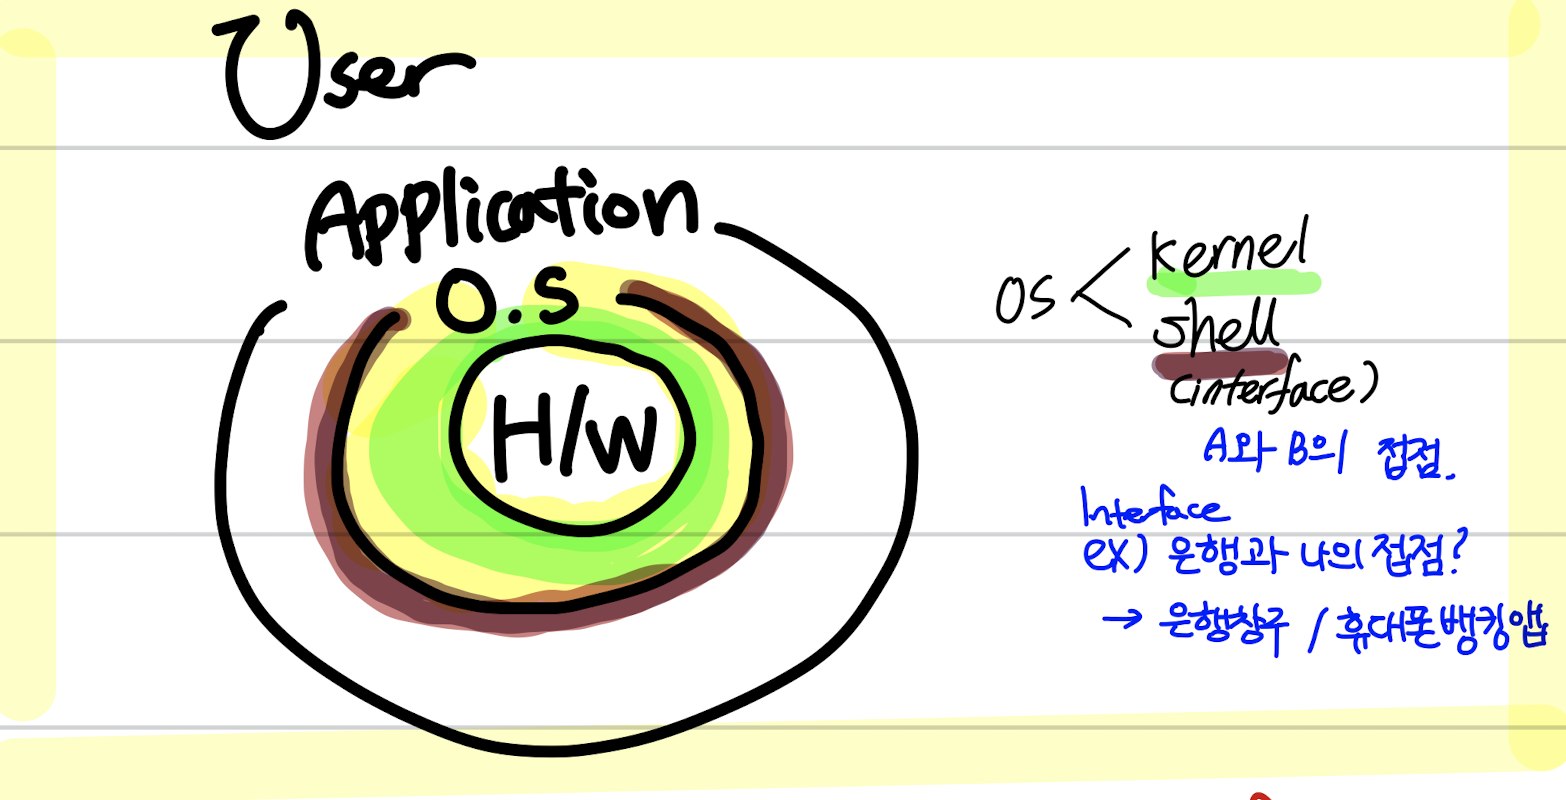 User
Application
O.S
H/W
OS < kernel
shell
(interface)
A와 B의 접점.
Interface
ex) 은행과 나의 접점?
→ 은행창구 / 휴대폰뱅킹앱